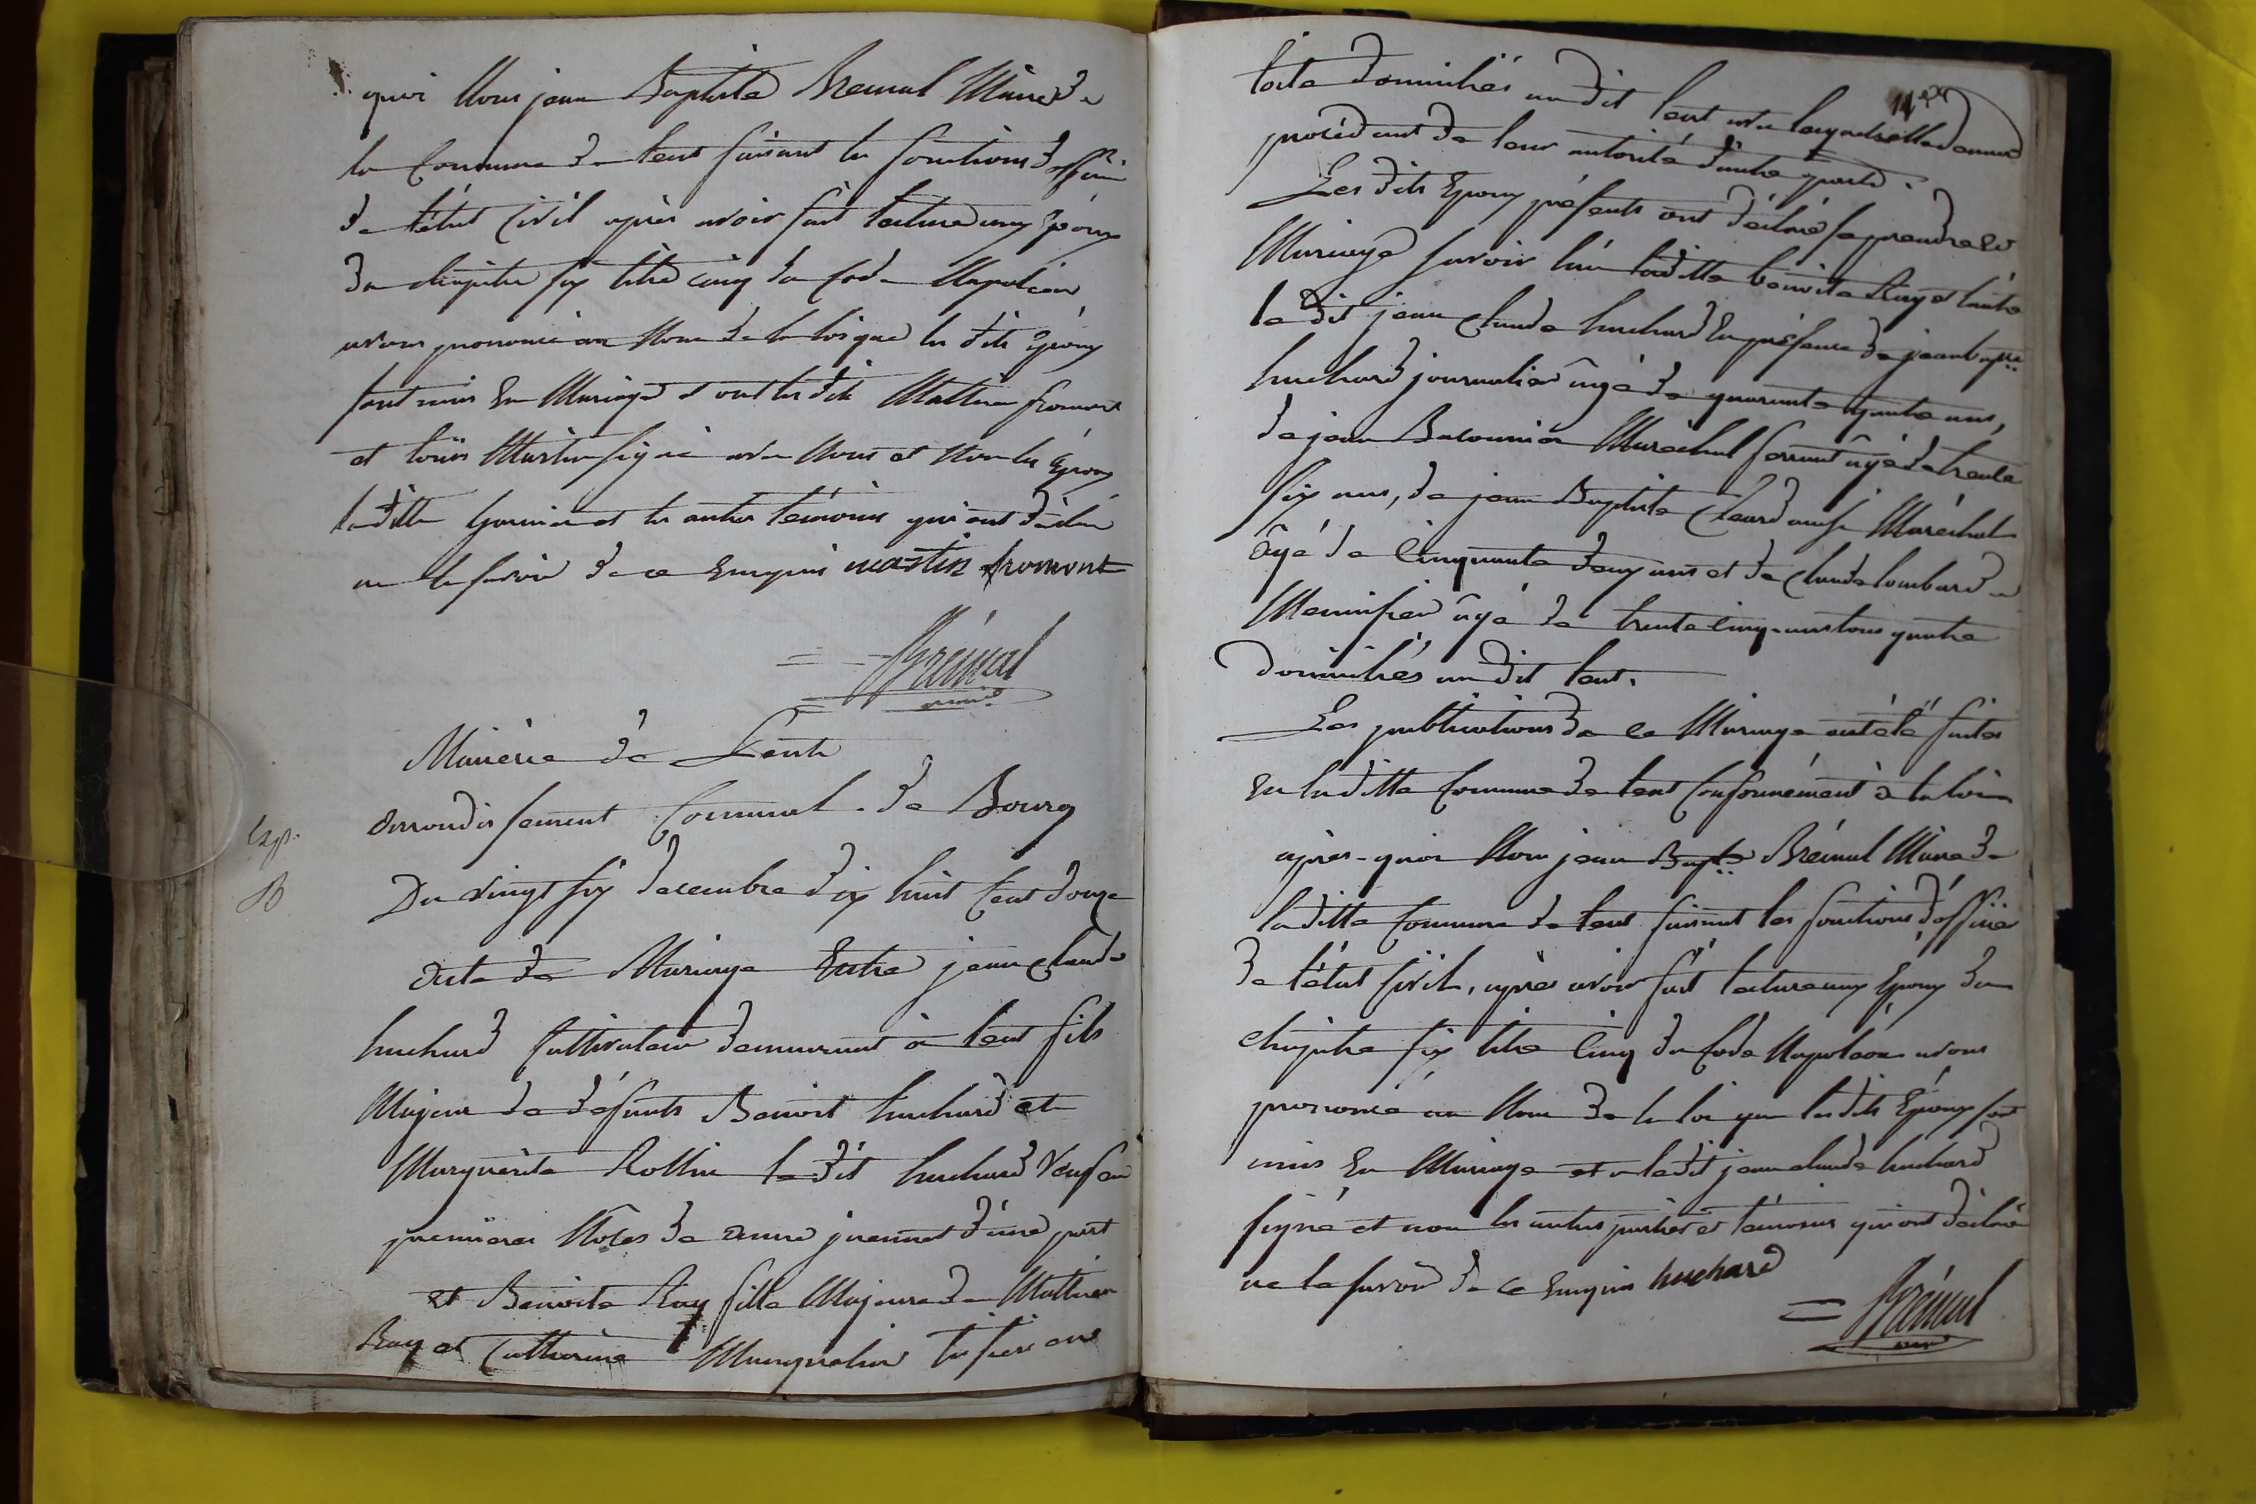 quoi Nous jean Baptiste Bremal Maire de
la Commune de lent faisant les fonctions d'officier
de l'état Civil après avoir fait lecture aux Epoux
du chapitre six titre cinq du Code Napoléon
avons prononcé au Nom de la loi que les dits Epoux
sont unis En Mariage et ont les dits Mathieu fromont
et loüis Martin signé avec Nous et Non les Epoux
laditte Garnier et les autres témoins qui ont déclaré
ne le savoir de ce Enquis martin fromont
Brémal
maire
Mairie de Lent
Exp.
arrondissement Communal de Bourg
B
Du vingt six decembre dix huit Cent douze
acte de Mariage Entre jean claude
huchard Cultivateur demeurant à lent fils
Majeur de défunts Benoit huchard et
Marguerite Rollin le dit huchard Veuf en
premieres Nôces de anne jeannet d'une part
et Benoite Ray fille Majeure de Mathieu
Ray et Catherine tissier and
toile domiciliés au dit lent avec lesquels elle demeure
procédant de leur autorité d'autre part.
Les dits Epoux présents ont déclaré se prendre En
Mariage savoir l'un laditte benoite Raÿ et l'autre
le dit jean claude huchard En présence de jean bapte
huchard journalier âgé de quarante quatre ans,
de jean Maréchal ferrant âgé de trente
six ans, de jean Baptiste aussi Maréchal
âgé de Cinquante deux ans et de claude lombard
Menuisier âgé de trente Cinq ans tous quatre
domiciliés au dit lent.
Les publications de ce Mariage ont été faites
En laditte Commune de lent Conformément à la loi
après quoi Nous jean Bapte Brémal Maire de
laditte Commune de lent faisant les fonctions d'officier
de l'état Civil, après avoir fait lecture aux Epoux du
chapitre six titre Cinq du Code Napoléon avons
prononcé au Nom de la loi que les dits Epoux sont
unis En Mariage et a ledit jean claude huchard
signé et non les autres parties et témoins qui ont déclaré
ne le savoir de ce Enquis huchard
Brémal
maire